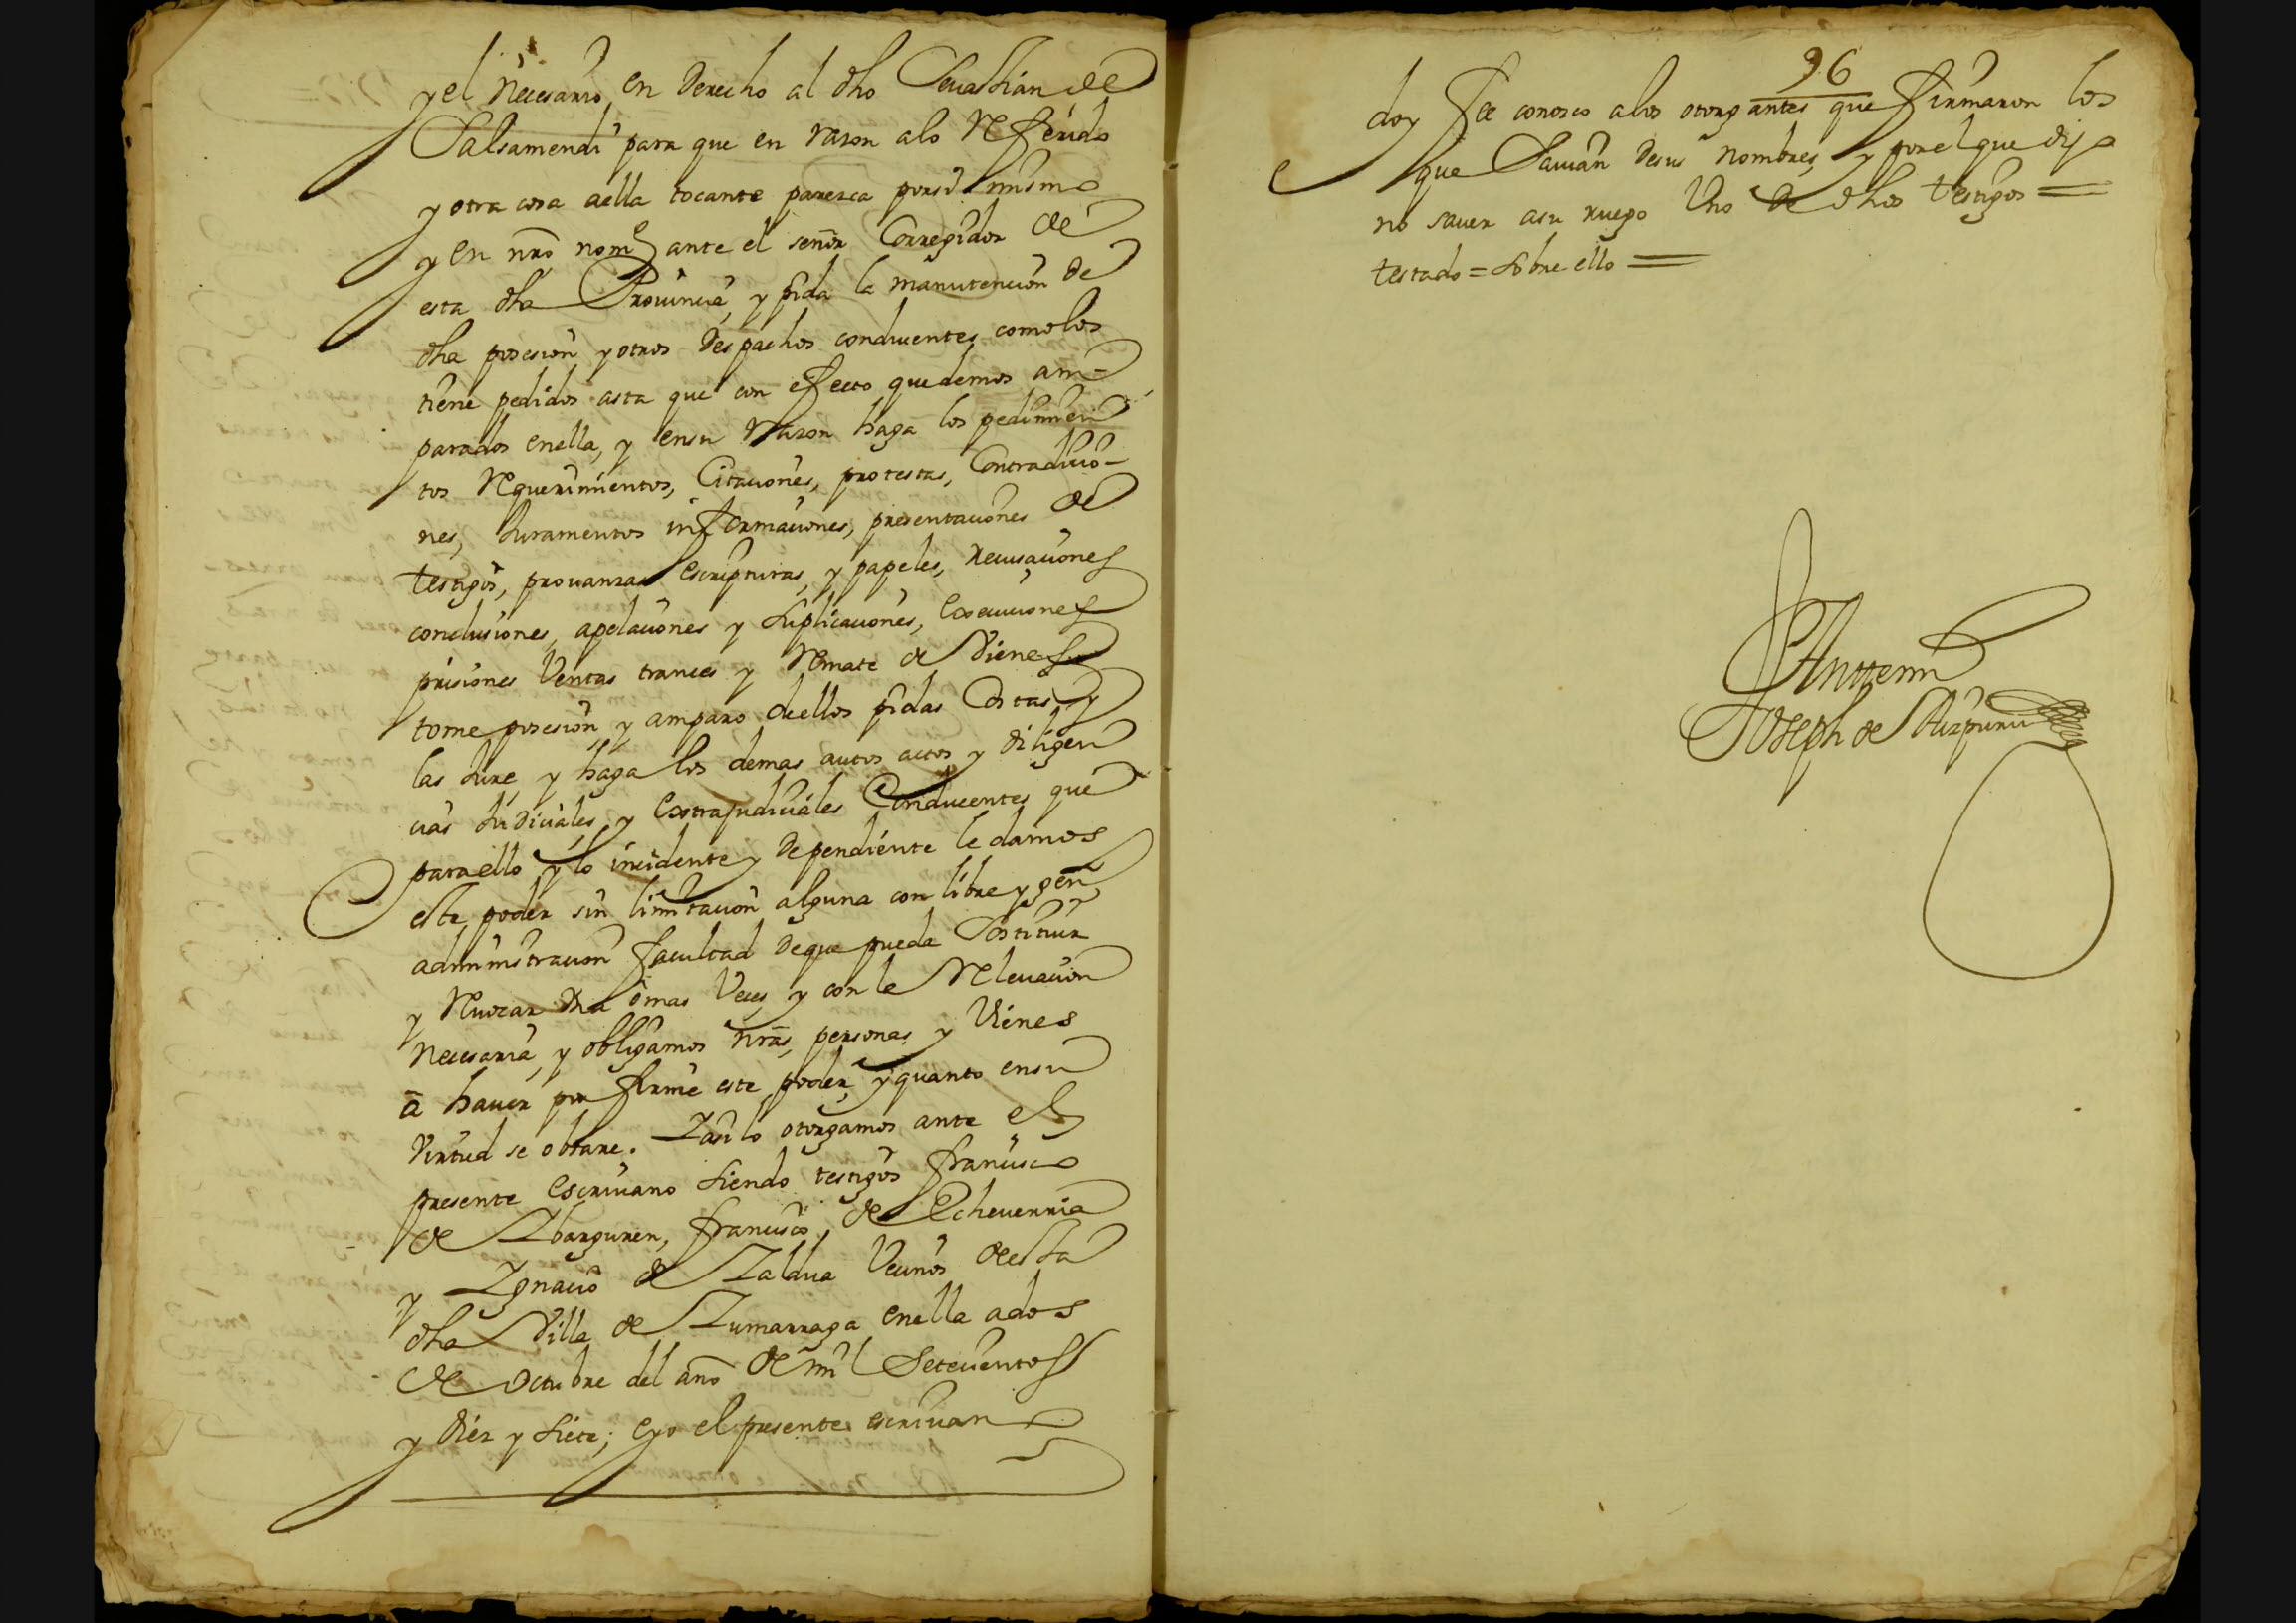 y el Necesario, en Derecho al dho Sevastian de
Salsamendi para que en razon alo Referido
y otra cosa aella tocante parezca porsi mismo
y en nro nome ante el señor Corregidor de
esta dha Provincia, y pida la manutencion de
dha posesion y otros Despachos conducentes comolos
tiene pedidos asta que con efecto quedemos am-
parados enella, y ensu Razon haga los pedimien
tos Requerimientos, Citaciones, protestas, Contradicio-
nes, Juramentos informaciones, presentaciones de
testigos, provanzas escripturas, y papeles, recusaciones
conclusiones, apelaciones y suplicaciones, Execuciones
prisiones Ventas trances y Remate de Vienes
tome posesion, y amparo dellos pidas Costas y
las Jure, y haga los demas autos actos y diligen
cias Judiciales, y Extrajudiciales Conducentes que
paraello y lo incidente y dependiente le damos
este poder sin limitacion alguna con libre y gen,
administracion facultad deque pueda Sostituir
y Revocar Vna omas Veces, y con la Relevacion
necesaria, y obligamos nras, personas y Vienes
ā haver por firme este poder, y quanto ensu
Virtud se obrare. Yasilo otorgamos ante el
presente escrivano siendo testigos francisco
de Ybarguren, francisco, de Echeverria
y Ygnacio de Zaldua Vecinos deesta
dha Villa de Zumarraga enella ados
de Octubre del año de mil Setecientos
y diez y siete; eyo el presente escrivano
96
doy fee conosco alos otorgantes que firmaron los
que Savian desus nombres, y porel que dijo
no saver asu ruego Vno de dhos testigos =
testado = sobre ello =
Anttemi
Joseph de Aizpuru